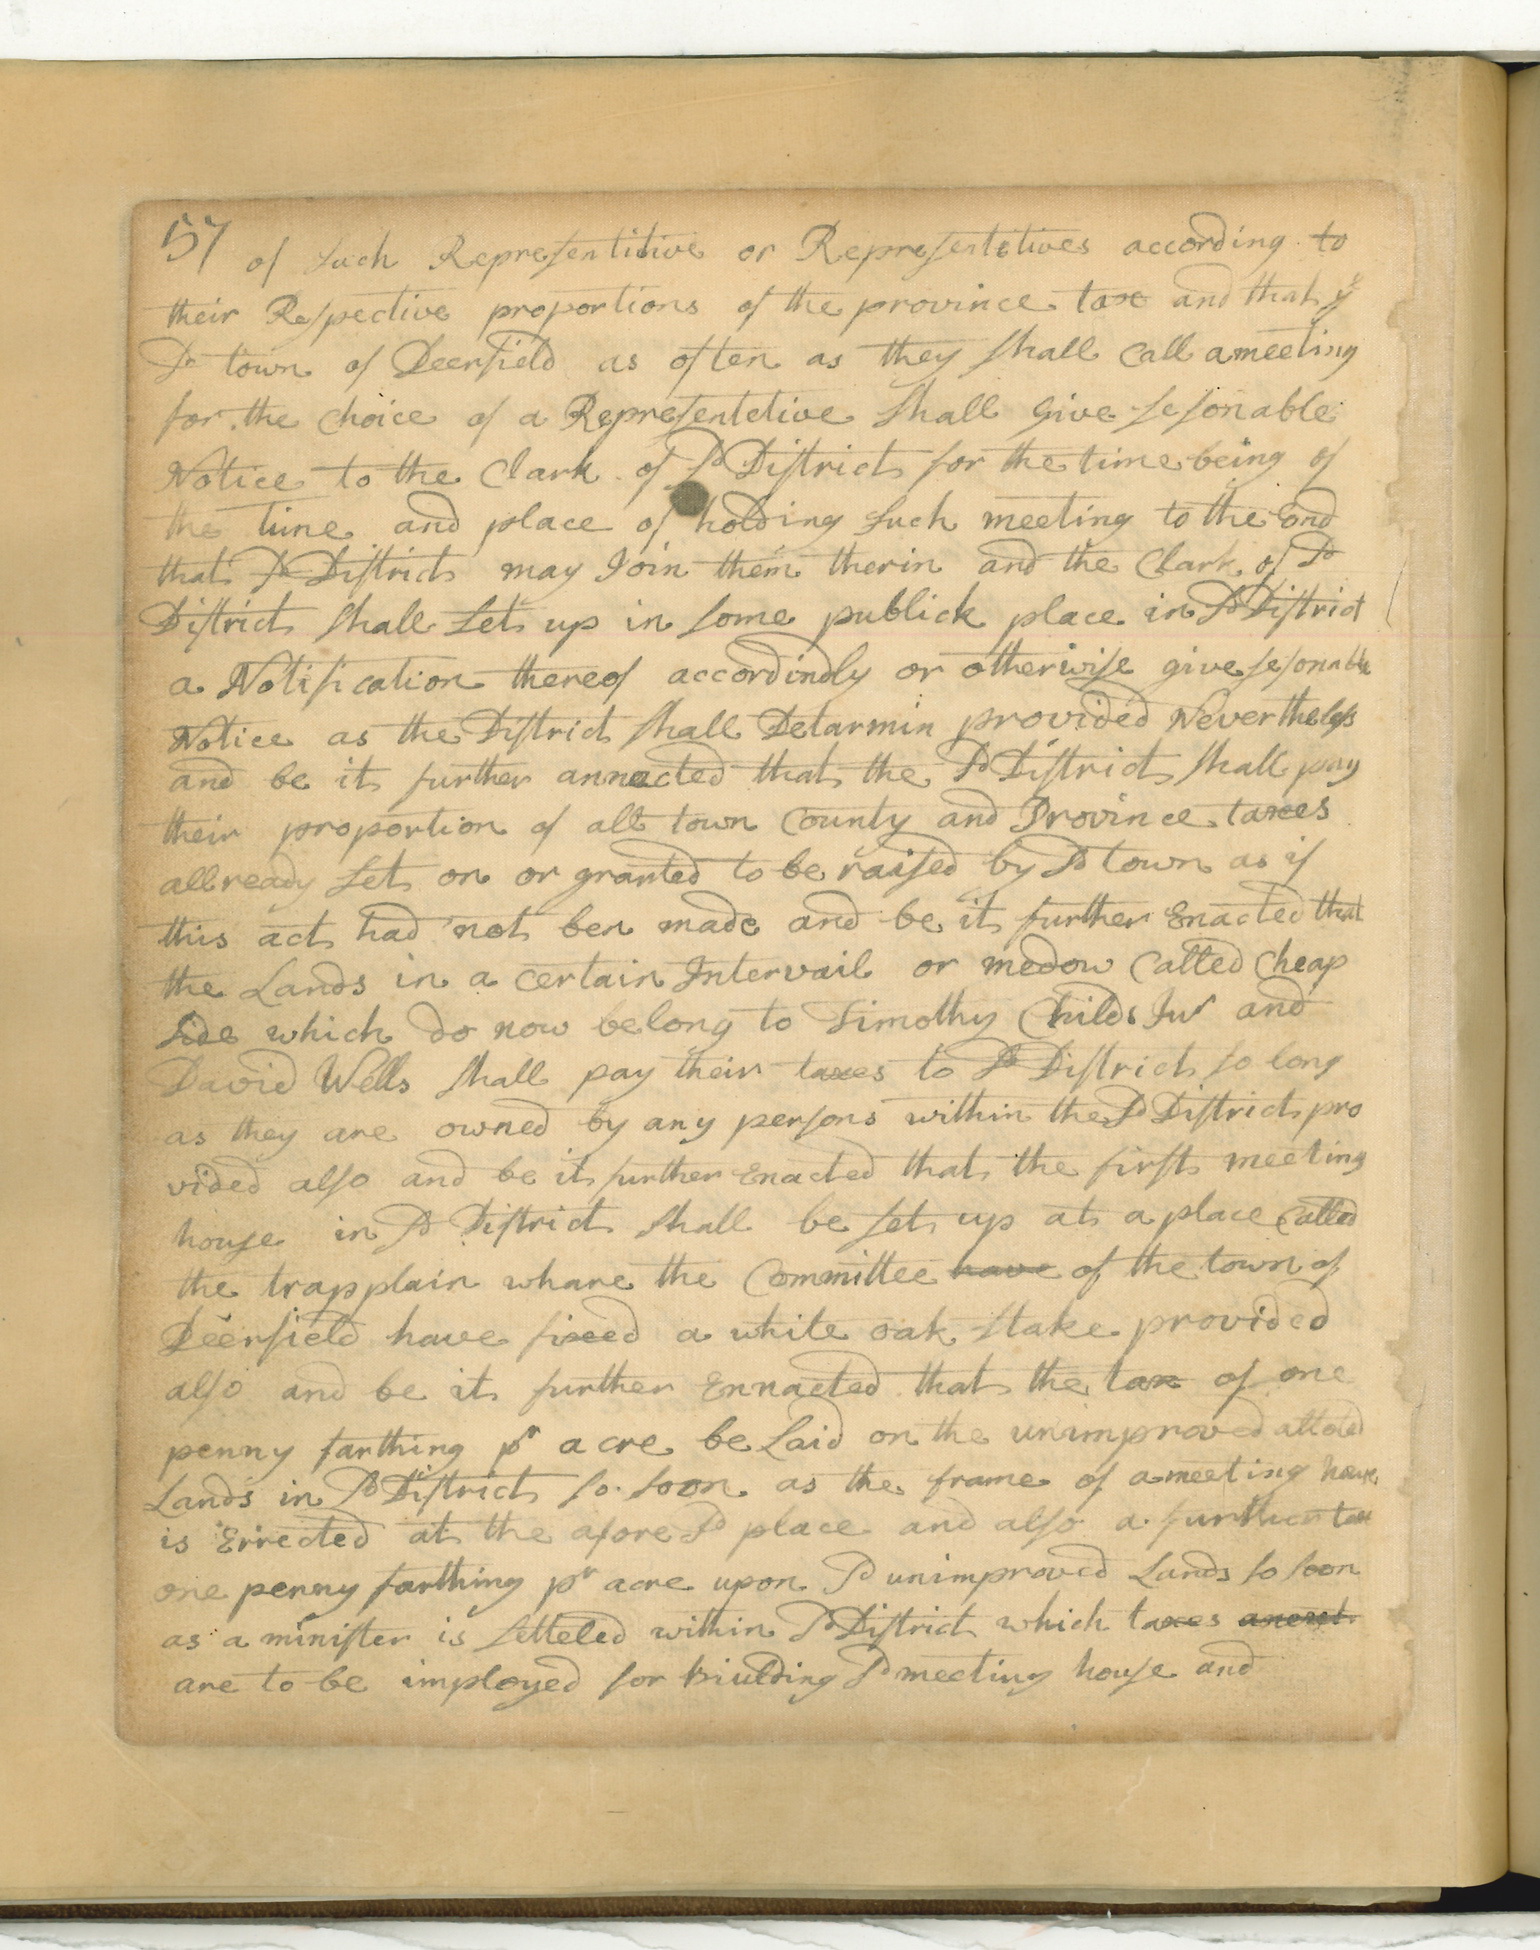 57 of such Representitive or Representetives according to
their Respective proportions of the province tax and that ye
Sd town of Deerfield as often as they shall Call a meeting
for the Choice of a Representetive shall Give sesonable
Notice to the Clark of Sd District for the time being of
the time and place of holding such meeting to the End
that Sd District may Join them therin and the Clark of Sd
District shall Set up in some publick place in Sd District
a Notification thereof accordindly or otherwise give sesonable
Notice as the District shall Detarmin provided Nevertheless
and be it further annacted that the Sd District shall pay
their proportion of all town County and Province taxes
allready Set on or granted to be raised by Sd town as if
this act had not ben made and be it further Enacted that
the Lands in a certain Intervail or medow Called Cheap
side which do now belong to Timothy Childs Junr and
David Wells shall pay their taxes to Sd District so long
as they are owned by any persons within the Sd District pro
vided also and be it further Enacted that the first meeting
house in Sd District shall be set up at a place Called
the trapplain whare the Committee have of the town of
Deerfield have fixed a white oak stake provided
also and be it further Ennacted that the tax of one
penny farthing pr acre be Laid on the unimproved alloted
Lands in Sd District so soon as the frame of a meeting house
is Errected at the afore Sd place and also a further tax
one penny farthing pr acre upon Sd unimproved Lands so soon
as a minister is setteled within Sd District which taxes
are to be imployed for biulding Sd meeting house and